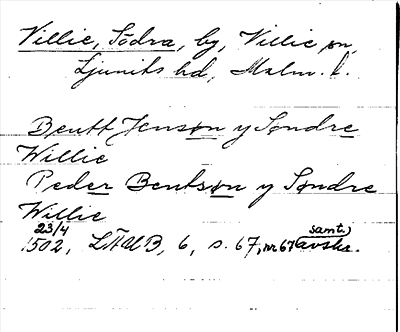 Villie, Södra, by, Villie sn,
Ljunits hd, Malm. l.
Bentt Jensøn y Søndre
Willie
Peder Bentsøn y Søndre
Willie
23/4 samt.
1502, LÄUB, 6, s. 67, nr 67 avskr.